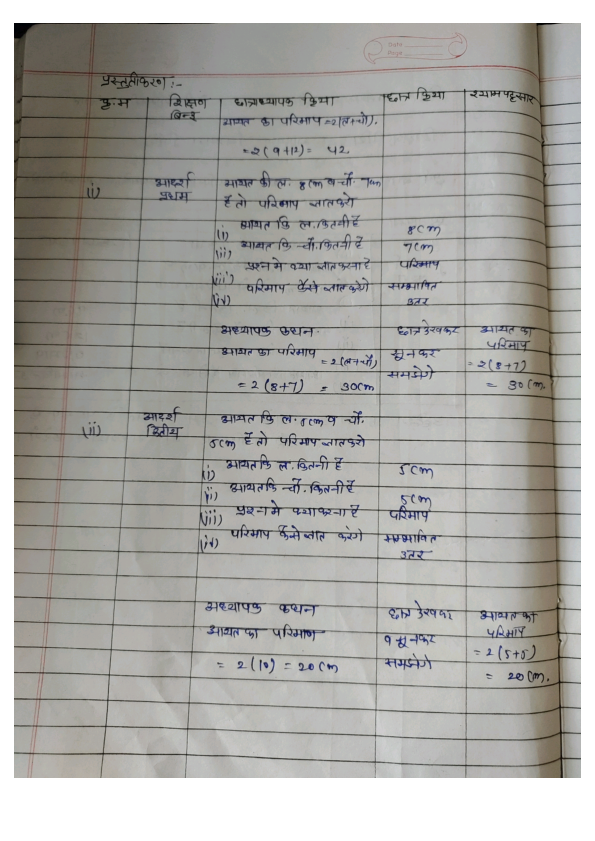 Date
Page
प्रस्तुतीकरण :-
क्र.म शिक्षण बिन्दु छात्राध्यापक क्रिया छात्र क्रिया श्यामपट्टसार
आयत का परिमाप = 2(ल+चौ).
= 2(9+12) = 42.
(i) आदर्श प्रथम आयत की ल. 8cm व चौ. 7cm
है तो परिमाप ज्ञात करो
(i) आयत कि ल. कितनी है 8cm
(ii) आयत कि चौ. कितनी है 7cm
(iii) प्रश्न मे क्या ज्ञात करना है परिमाप
(iv) परिमाप कैसे ज्ञात करेंगे सम्भावित उतर
अध्यापक कथन. छात्र देखकर आयत का
आयत का परिमाप = 2(ल+चौ) सुनकर परिमाप
= 2(8+7) = 30cm समझेगे = 2(8+7)
= 30cm.
(ii) आदर्श द्वितीय आयत कि ल. 5cm व चौ.
5cm है तो परिमाप ज्ञात करो
(i) आयत कि ल. कितनी है 5cm
(ii) आयत कि चौ. कितनी है 5cm
(iii) प्रश्न मे क्या करना है परिमाप
(iv) परिमाप कैसे ज्ञात करेंगे सम्भावित उतर
अध्यापक कथन छात्र देखकर आयत का
आयत का परिमाण व सुनकर परिमाप
= 2(10) = 20cm समझेगे = 2(5+5)
= 20cm.